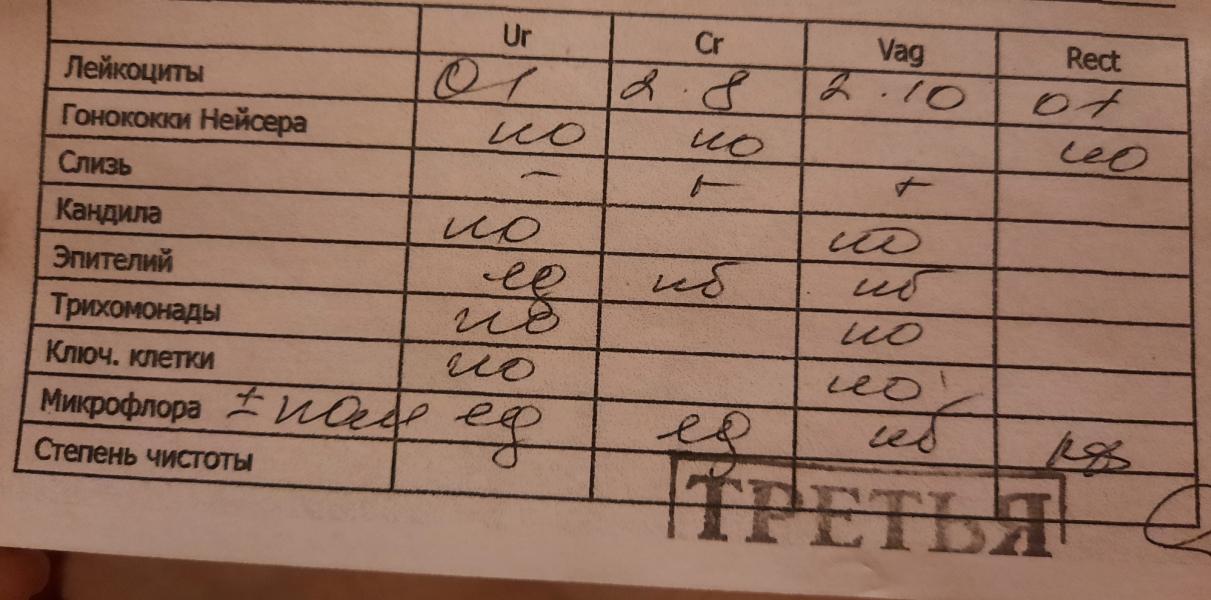 Ur Cr Vag Rect
Лейкоциты 01 2.8 2.10 01
Гонококки Нейсера но но но
Слизь - + +
Кандила но но
Эпителий ед нб нб
Трихомонады но но
Ключ. клетки но но
Микрофлора ± ед ед нб
Степень чистоты
ТРЕТЬЯ